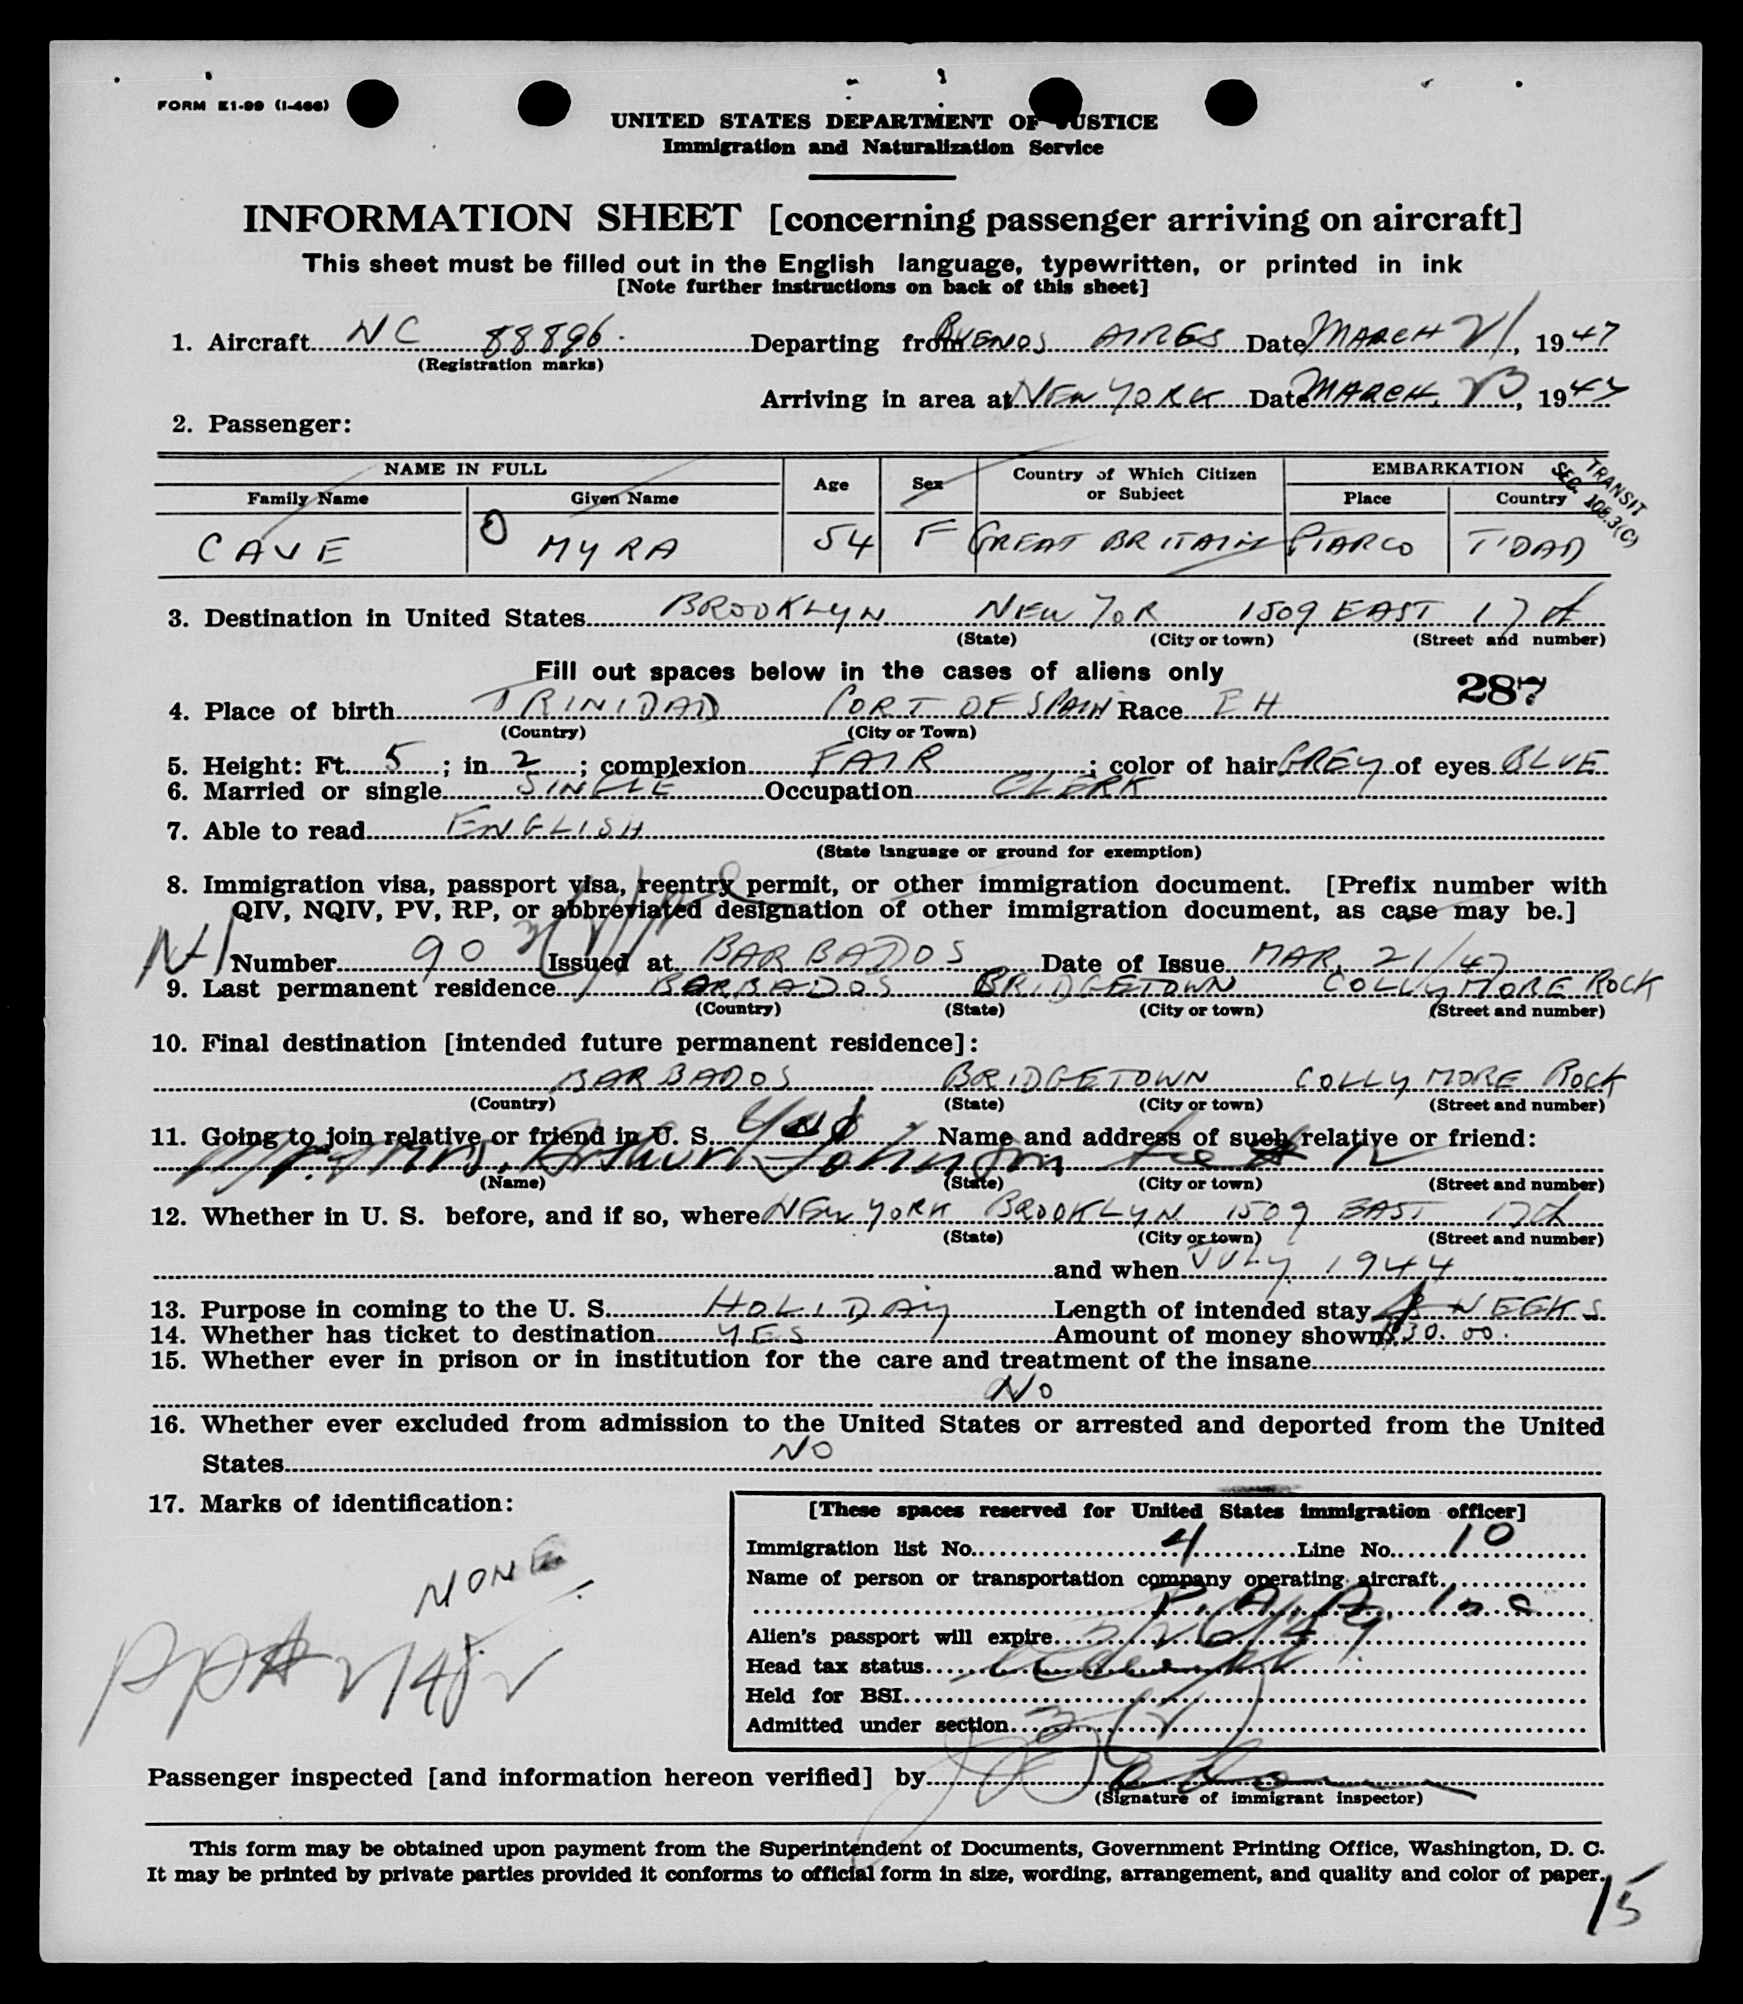 FORM E1-99 (I-466)
UNITED STATES DEPARTMENT OF JUSTICE
Immigration and Naturalization Service
INFORMATION SHEET [concerning passenger arriving on aircraft]
This sheet must be filled out in the English language, typewritten, or printed in ink
[Note further instructions on back of this sheet]
1. Aircraft NC 88896. Departing from BUENOS AIRES Date MARCH 21, 1947
(Registration marks)
Arriving in area at NEW YORK Date MARCH 23, 1947
2. Passenger:
NAME IN FULL Age Sex Country of Which Citizen or Subject EMBARKATION
Family Name Given Name Place Country
TRANSIT SEC. 108.3(C)
CAVE O MYRA 54 F GREAT BRITAIN PIARCO T'DAD
3. Destination in United States BROOKLYN NEW YOR 1509 EAST 17th
(State) (City or town) (Street and number)
Fill out spaces below in the cases of aliens only
287
4. Place of birth TRINIDAD PORT OF SPAIN Race EH
(Country) (City or Town)
5. Height: Ft. 5; in. 2; complexion FAIR; color of hair GREY of eyes BLUE
6. Married or single SINGLE Occupation CLERK
7. Able to read ENGLISH
(State language or ground for exemption)
8. Immigration visa, passport visa, reentry permit, or other immigration document. [Prefix number with
QIV, NQIV, PV, RP, or abbreviated designation of other immigration document, as case may be.]
Number 90 Issued at BARBADOS Date of Issue MAR. 21/47
9. Last permanent residence BARBADOS BRIDGETOWN COLLYMORE ROCK
(Country) (State) (City or town) (Street and number)
10. Final destination [intended future permanent residence]:
BARBADOS BRIDGETOWN COLLYMORE ROCK
(Country) (State) (City or town) (Street and number)
11. Going to join relative or friend in U. S. Yes Name and address of such relative or friend:
Mr. & Mrs. Arthur Johnson
(Name) (State) (City or town) (Street and number)
12. Whether in U. S. before, and if so, where NEW YORK BROOKLYN 1509 EAST 17th
(State) (City or town) (Street and number)
and when JULY 1944
13. Purpose in coming to the U. S. HOLIDAY Length of intended stay WEEKS
14. Whether has ticket to destination YES Amount of money shown $30.00.
15. Whether ever in prison or in institution for the care and treatment of the insane
NO
16. Whether ever excluded from admission to the United States or arrested and deported from the United
States NO
17. Marks of identification:
NONE
[These spaces reserved for United States immigration officer]
Immigration list No. 4 Line No. 10
Name of person or transportation company operating aircraft
P. A. A. Inc
Alien's passport will expire
Head tax status
Held for BSI
Admitted under section 3(2)
Passenger inspected [and information hereon verified] by
(Signature of immigrant inspector)
This form may be obtained upon payment from the Superintendent of Documents, Government Printing Office, Washington, D. C.
It may be printed by private parties provided it conforms to official form in size, wording, arrangement, and quality and color of paper.
15